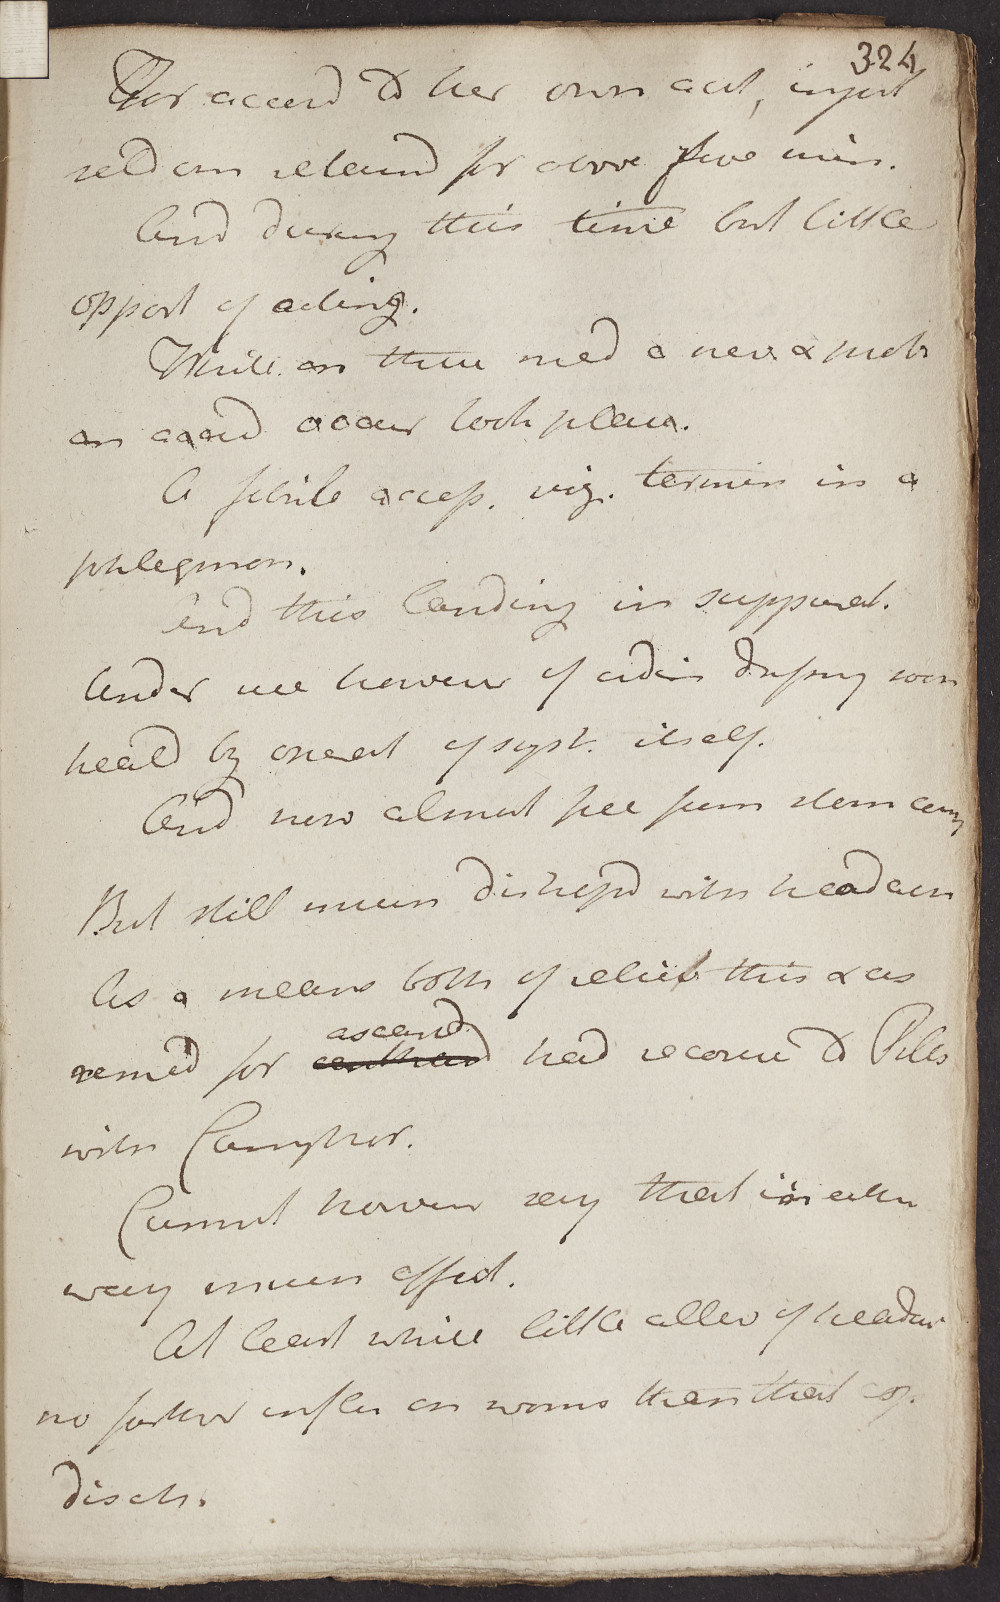 324
For accord to her own acct, inject
seldom retaind for above five min.
And during this time but little
opport of acting.
While on these med a new & prob
an accid occur took place.
A febrile access. viz. termin in a
phlegmon.
And this landing in suppurat.
Under use however of ordin dressing soon
heald by operat of syst. itself.
And now almost free from
But still much distressd with headach
As a means both of relief this & as
remed for ascarid had recourse to Pills
with Camphor.
Cannot however say that in either
way much effect.
At least while little allev of headach
no farther influ on worms than that
disch.